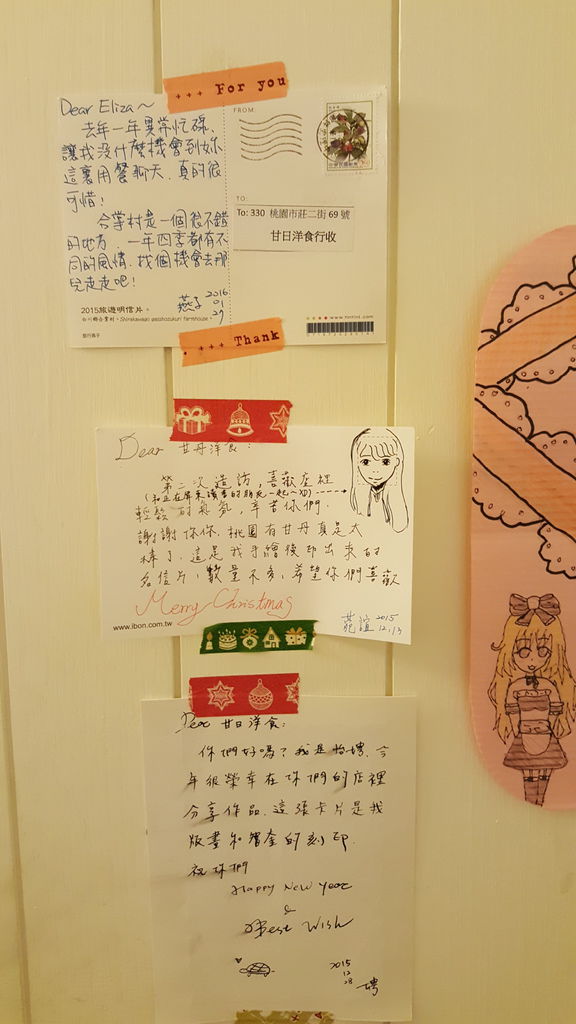 +++ For you
Dear Eliza~
去年一年異常忙碌、
讓我沒什麼機會到妳
這裏用餐聊天、真的很
可惜!
合掌村是一個很不錯
的地方、一年四季都有不
同的風情、找個機會去那
兒走走吧!
燕子 2016
01
29
2015旅遊明信片。
旅行燕子
FROM:
TO:
To: 330 桃園市莊二街 69 號
甘日洋食行收
www.hmtint.com
. +++ Thank
Dear 甘丹洋食:
第二次造訪,喜歡店裡
輕鬆的氣氛,辛苦你們.
謝謝你們,桃園有甘丹真是太
棒了.這是我手繪後印出來的
名信片,數量不多,希望你們喜歡
Merry Christmas
www.ibon.com.tw
2015
12.13
Dear 甘日洋食:
你們好嗎?我是怡娉,今
年很榮幸在妳們的店裡
分享作品.這張卡片是我
版畫和 的刻印.
祝妳們
Happy New Year
&
Best Wish
2015
12
28
娉